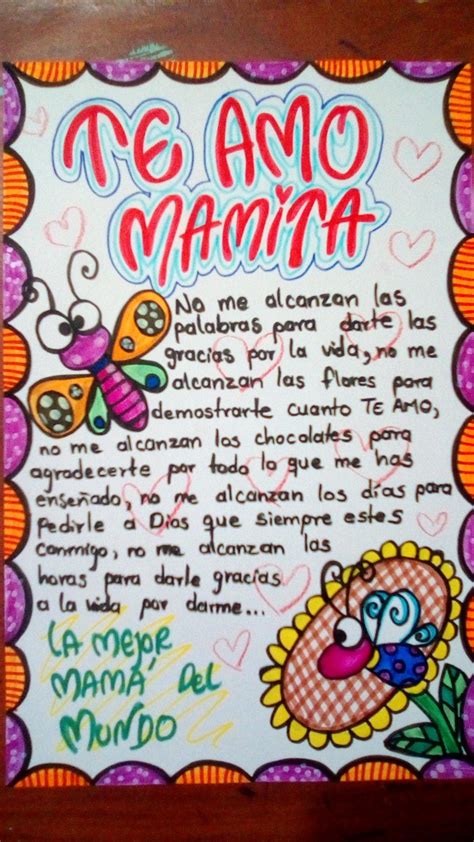 TE AMO
MAMITA
No me alcanzan las
palabras para darte las
gracias por la vida, no me
alcanzan las flores para
demostrarte cuanto TE AMO,
no me alcanzan los chocolates para
agradecerte por todo lo que me has
enseñado, no me alcanzan los días para
Pedirle a Dios que siempre estes
conmigo, no me alcanzan las
horas para darle gracias
a la vida por darme...
LA MEJOR
MAMÁ DEL
MUNDO